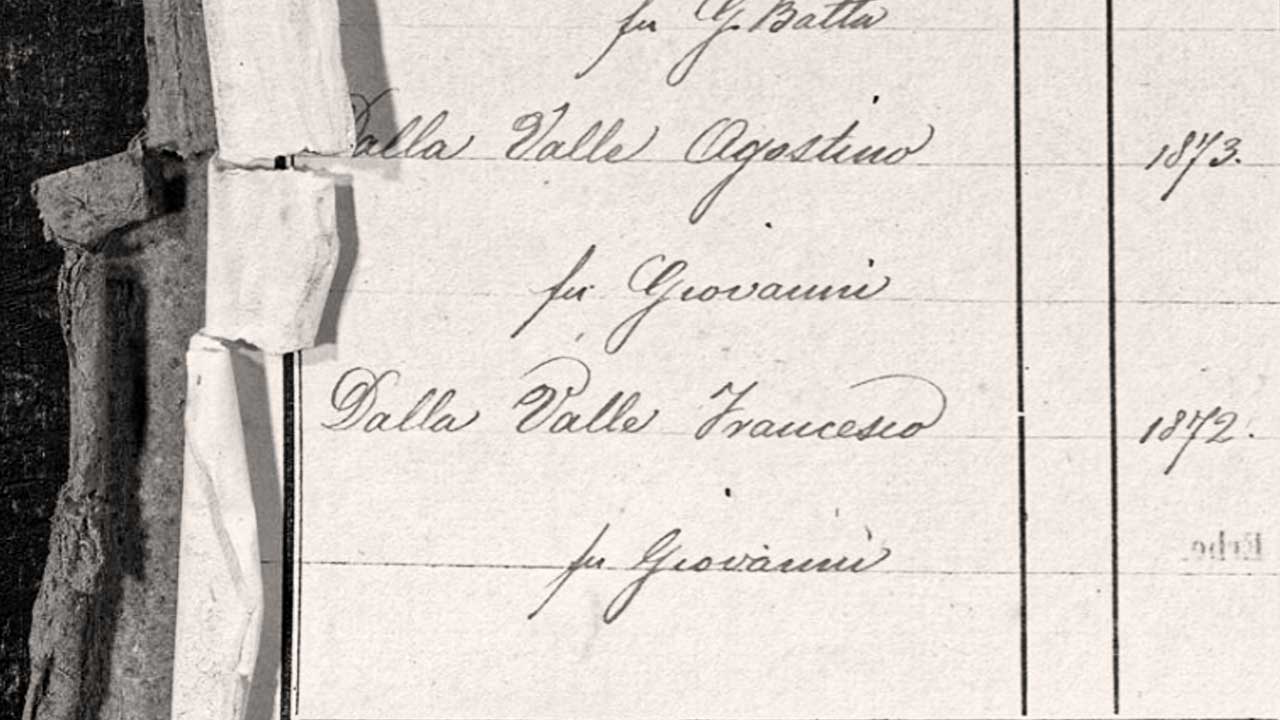 fu G. Batta
Dalla Valle Agostino 1873.
fu Giovanni
Dalla Valle Francesco 1872.
fu Giovanni